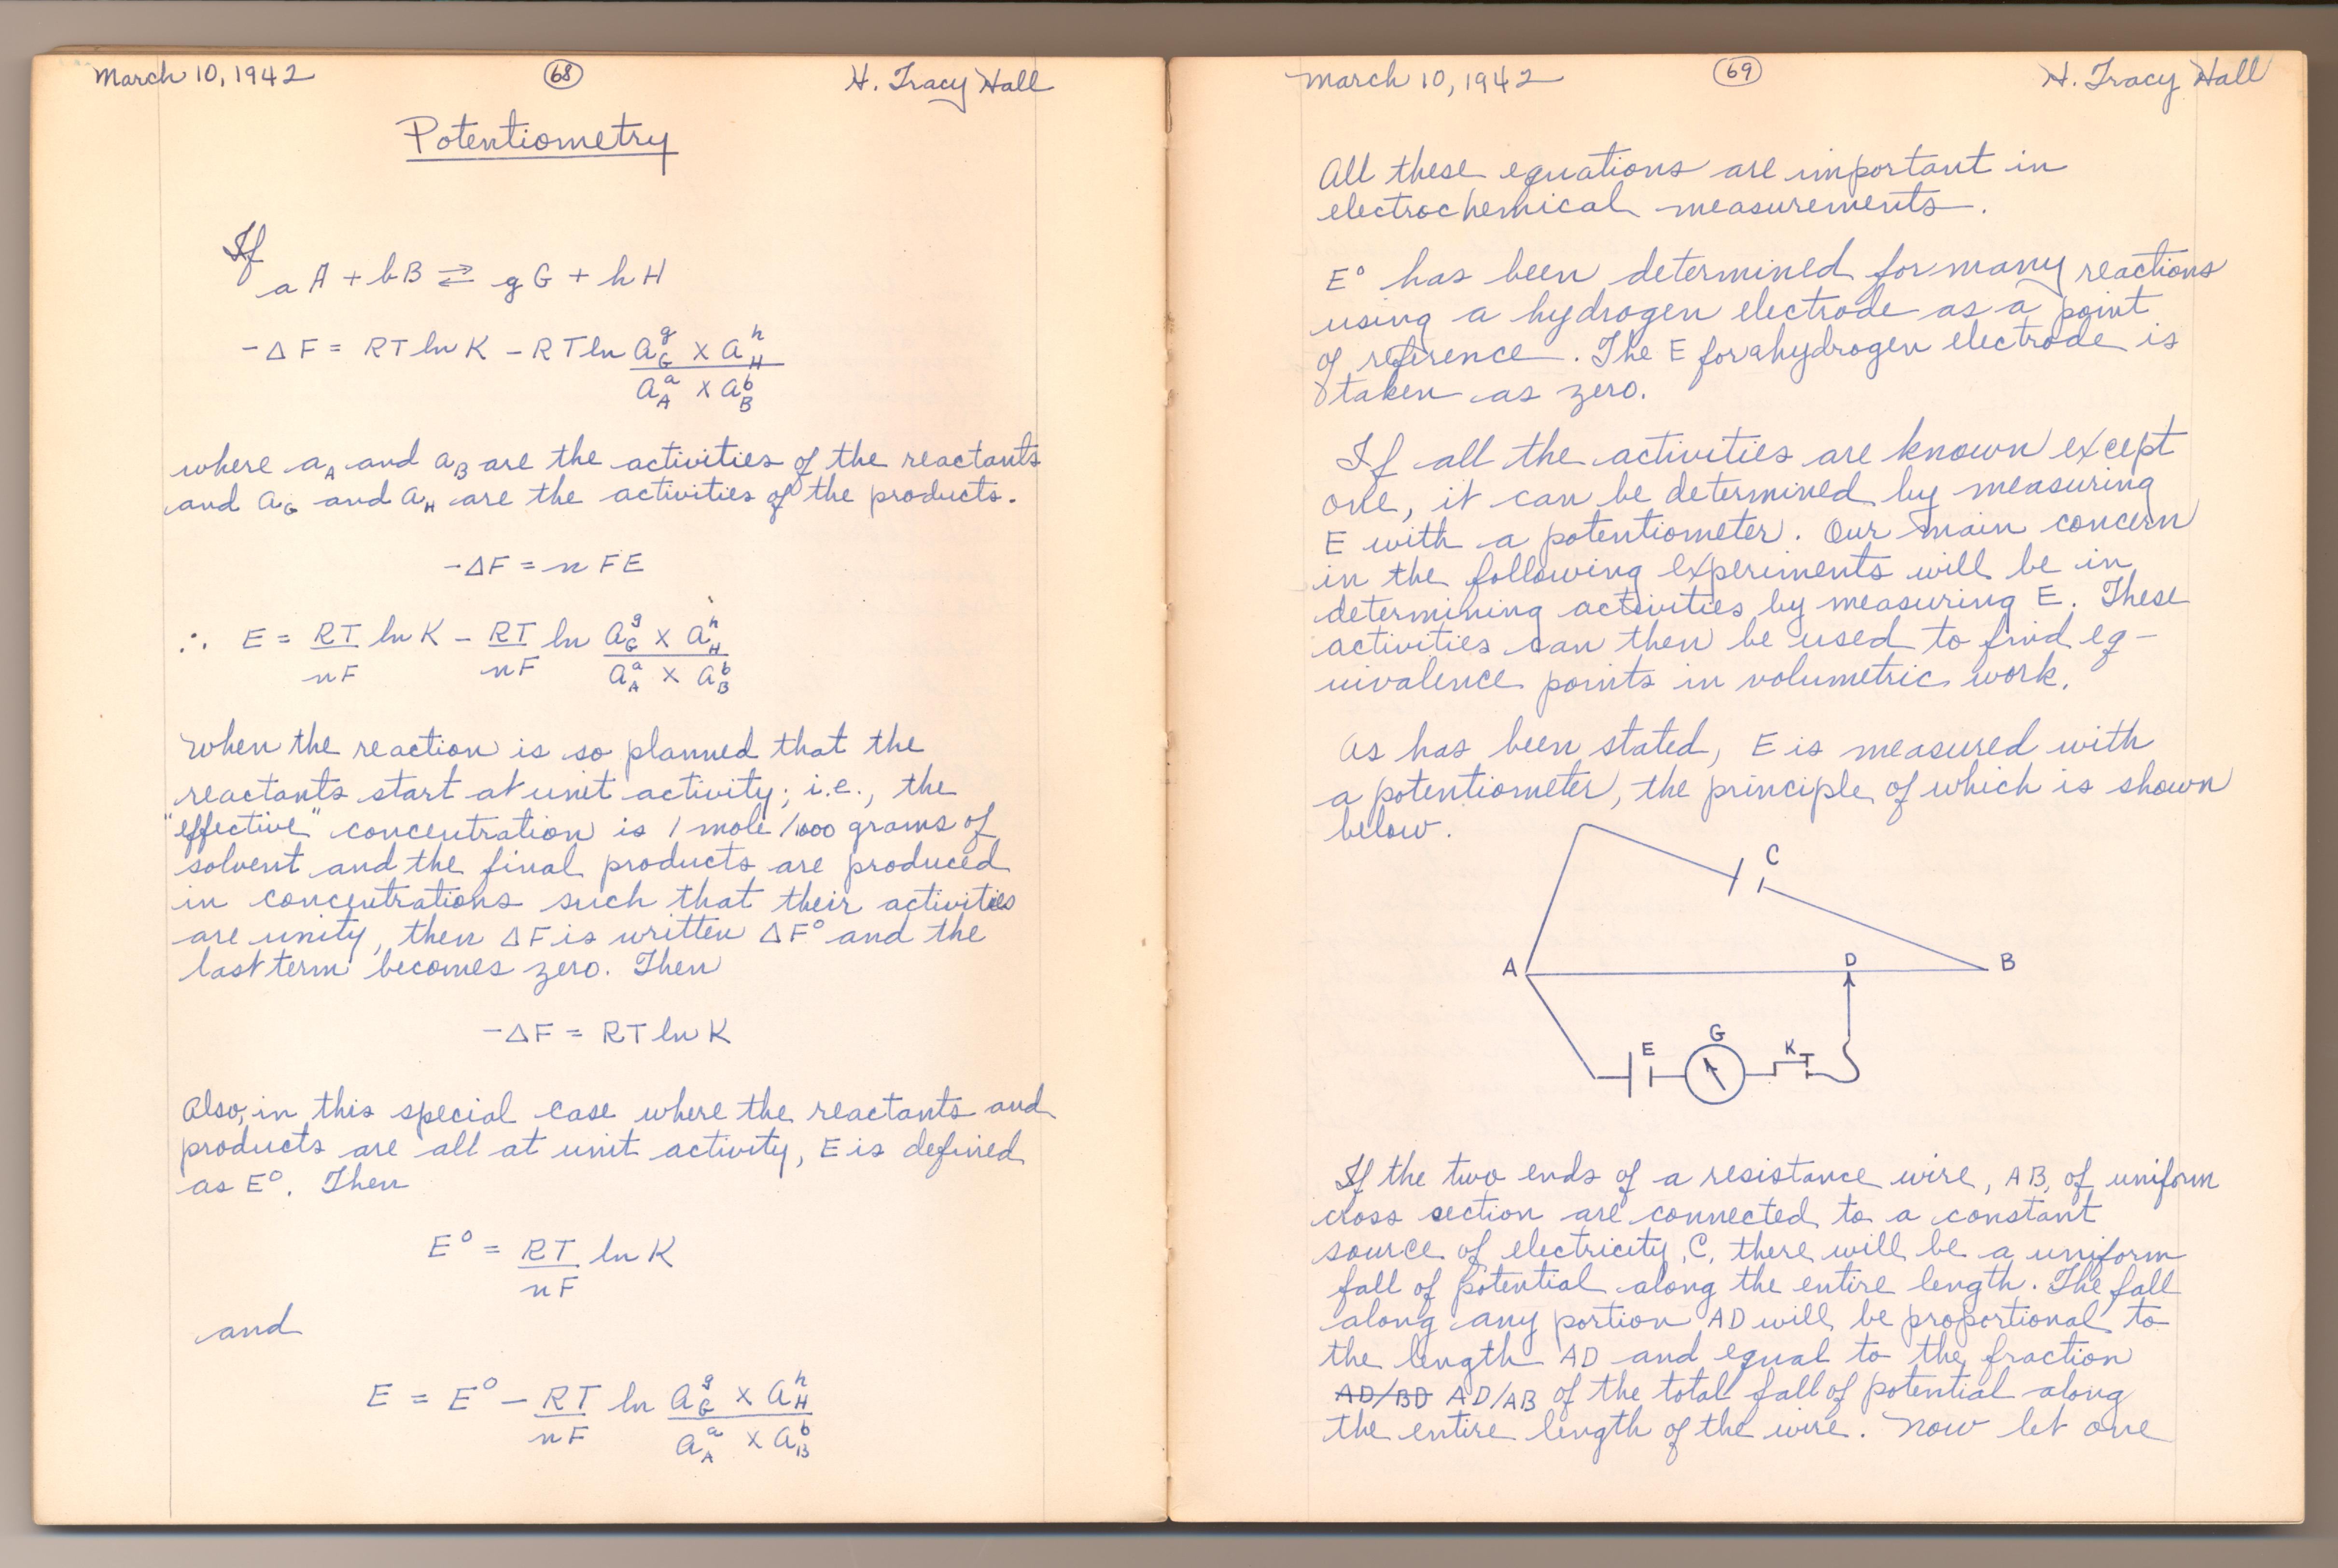 March 10, 1942 68 H. Tracy Hall
Potentiometry
If
aA + bB ⇄ gG + hH
-ΔF = RT ln K - RT ln a_G^g × a_H^h
a_A^a × a_B^b
where a_A and a_B are the activities of the reactants
and a_G and a_H are the activities of the products.
-ΔF = nFE
∴ E = RT ln K - RT ln a_G^g × a_H^h
nF nF a_A^a × a_B^b
When the reaction is so planned that the
reactants start at unit activity; i.e., the
"effective" concentration is 1 mole/1000 grams of
solvent and the final products are produced
in concentrations such that their activities
are unity, then ΔF is written ΔF° and the
last term becomes zero. Then
-ΔF = RT ln K
Also, in this special case where the reactants and
products are all at unit activity, E is defined
as E°. Then
E° = RT ln K
nF
and
E = E° - RT ln a_G^g × a_H^h
nF a_A^a × a_B^b
March 10, 1942 69 H. Tracy Hall
All these equations are important in
electrochemical measurements.
E° has been determined for many reactions
using a hydrogen electrode as a point
of reference. The E for a hydrogen electrode is
taken as zero.
If all the activities are known except
one, it can be determined by measuring
E with a potentiometer. Our main concern
in the following experiments will be in
determining activities by measuring E. These
activities can then be used to find eq-
uivalence points in volumetric work.
As has been stated, E is measured with
a potentiometer, the principle of which is shown
below.
C
A D B
E G K
If the two ends of a resistance wire, AB, of uniform
cross section are connected to a constant
source of electricity, C, there will be a uniform
fall of potential along the entire length. The fall
along any portion AD will be proportional to
the length AD and equal to the fraction
AD/BD AD/AB of the total fall of potential along
the entire length of the wire. Now let one